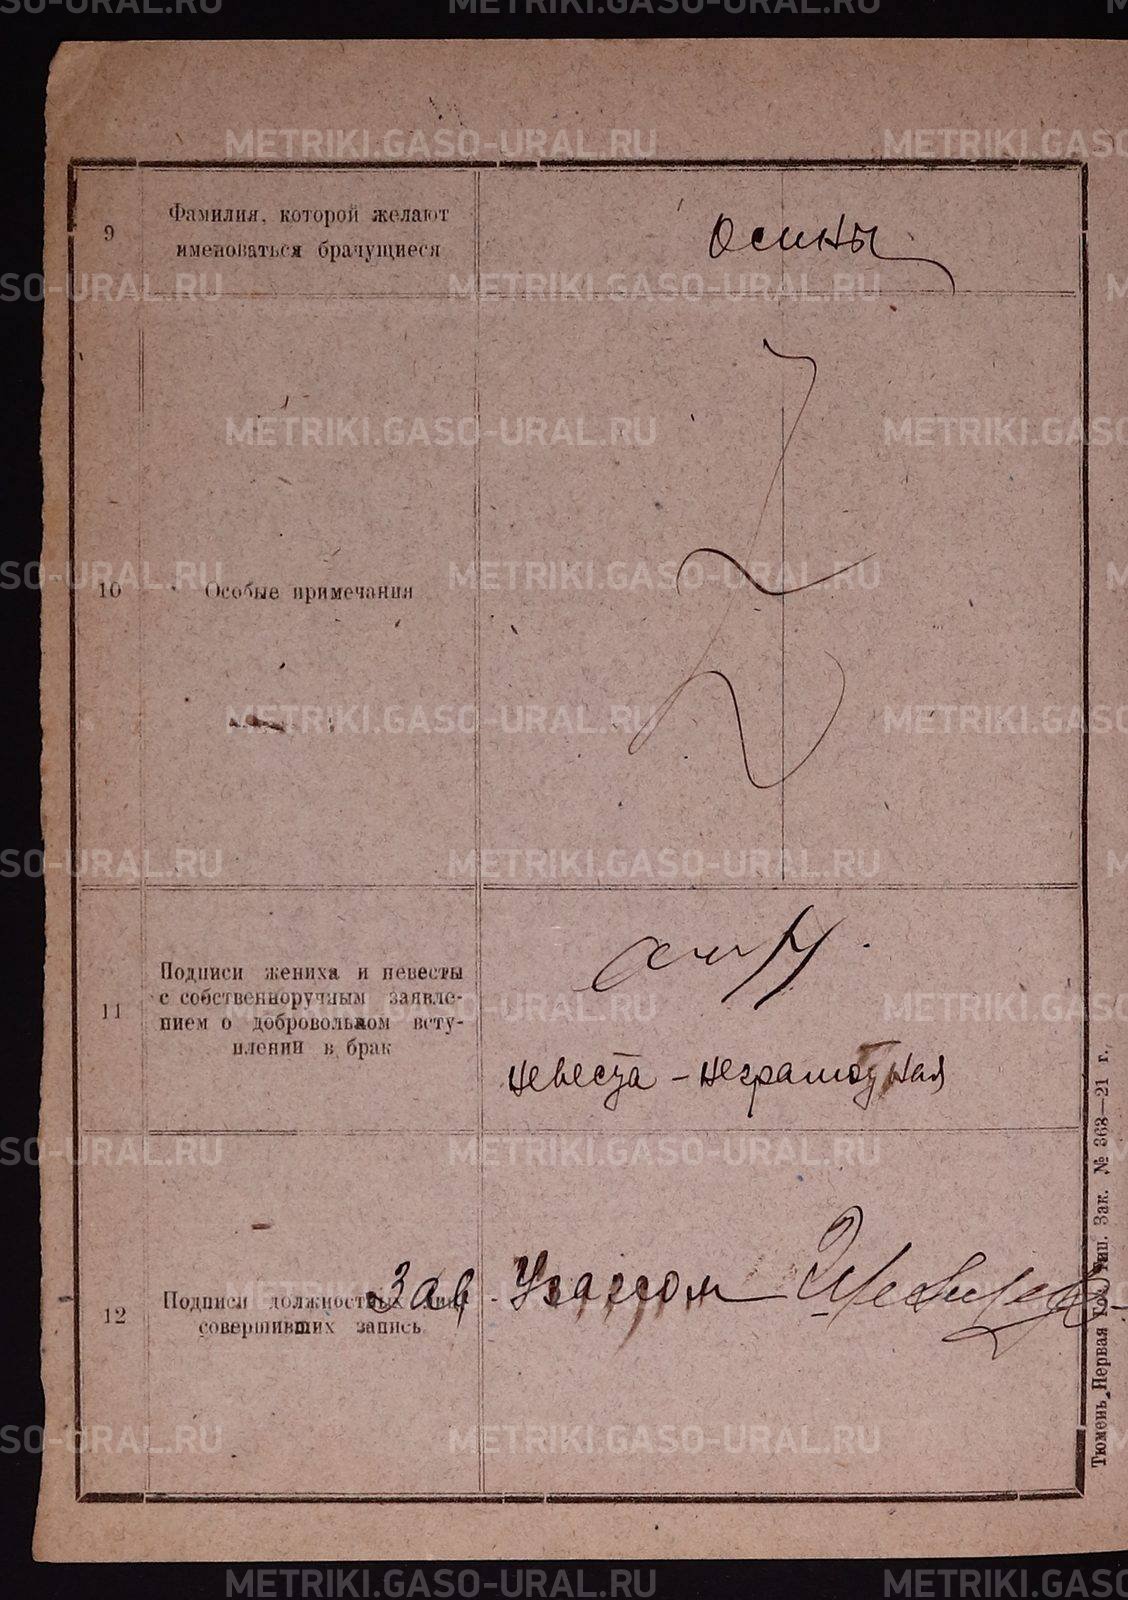 METRIKI.GASO-URAL.RU
9
Фамилия, которой желают
именоваться брачущиеся
Осины
10
Особые примечания
11
Подписи жениха и невесты
с собственноручным заявле-
нием о добровольном всту-
плении в брак
невеста - неграмотная
12
Подписи должностных лиц
совершивших запись
Зав.
Тюмень, Первая Гос. тип. Зак. № 363—21 г.